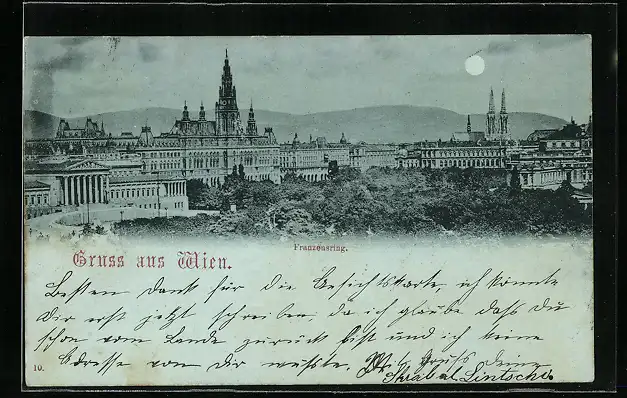 Franzensring.
Gruss aus Wien.
Besten Dank für die Besichtskarte, ich konnte
Dir erst jetzt schreiben, da ich glaube dass du
schon vom Lande zurück bist und ich keine
Adresse von dir wusste. Gruss Deine
10.